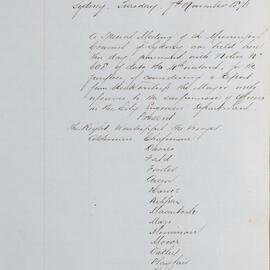 Sydney, Tuesday, 7th November 1876
A Special Meeting of the Municipal
Council of Sydney was held here
this day, pursuant with Notice No
608 of date the 4th instant, for the
purpose of considering a Report
from the Worship the Mayor with
reference to the suspension of Officers
in the City Engineers Department
Present
The Right Worshipful the Mayor
Aldermen Chapman
Davies
Field
Fowler
Green
Macintosh
Moore
Oatley
Playfair